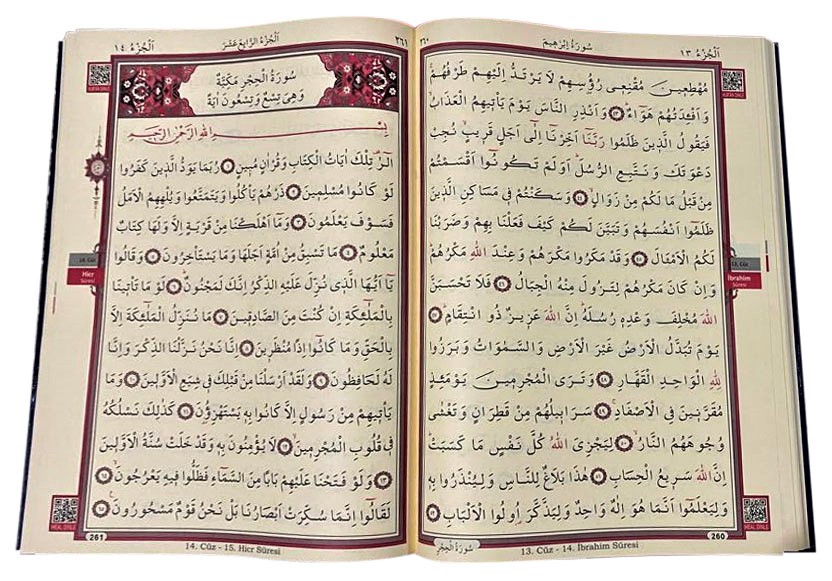 اَلْجُزْءُ ١٣
سُورَةُ اِبْرٰهِيمَ
٢٦٠
مُهْطِعِينَ مُقْنِعِى رُؤُسِهِمْ لَا يَرْتَدُّ اِلَيْهِمْ طَرْفُهُمْ
وَاَفْـِٔدَتُهُمْ هَوَٓاءٌ ٤٣ وَاَنْذِرِ النَّاسَ يَوْمَ يَأْتِيهِمُ الْعَذَابُ
فَيَقُولُ الَّذِينَ ظَلَمُوا رَبَّنَٓا اَخِّرْنَٓا اِلٰٓى اَجَلٍ قَرِيبٍ نُجِبْ
دَعْوَتَكَ وَنَتَّبِعِ الرُّسُلَ اَوَلَمْ تَكُونُٓوا اَقْسَمْتُمْ
مِنْ قَبْلُ مَا لَكُمْ مِنْ زَوَالٍ ٤٤ وَسَكَنْتُمْ فِى مَسَاكِنِ الَّذِينَ
ظَلَمُٓوا اَنْفُسَهُمْ وَتَبَيَّنَ لَكُمْ كَيْفَ فَعَلْنَا بِهِمْ وَضَرَبْنَا
لَكُمُ الْاَمْثَالَ ٤٥ وَقَدْ مَكَرُوا مَكْرَهُمْ وَعِنْدَ اللّٰهِ مَكْرُهُمْ
وَاِنْ كَانَ مَكْرُهُمْ لِتَزُولَ مِنْهُ الْجِبَالُ ٤٦ فَلَا تَحْسَبَنَّ
اللّٰهَ مُخْلِفَ وَعْدِهِ رُسُلَهُ اِنَّ اللّٰهَ عَزِيزٌ ذُو انْتِقَامٍ ٤٧
يَوْمَ تُبَدَّلُ الْاَرْضُ غَيْرَ الْاَرْضِ وَالسَّمٰوَاتُ وَبَرَزُوا
لِلّٰهِ الْوَاحِدِ الْقَهَّارِ ٤٨ وَتَرَى الْمُجْرِمِينَ يَوْمَئِذٍ
مُقَرَّنِينَ فِى الْاَصْفَادِ ٤٩ سَرَابِيلُهُمْ مِنْ قَطِرَانٍ وَتَغْشٰى
وُجُوهَهُمُ النَّارُ ٥٠ لِيَجْزِىَ اللّٰهُ كُلَّ نَفْسٍ مَا كَسَبَتْ
اِنَّ اللّٰهَ سَرِيعُ الْحِسَابِ ٥١ هٰذَا بَلَاغٌ لِلنَّاسِ وَلِيُنْذَرُوا بِهِ
وَلِيَعْلَمُٓوا اَنَّمَا هُوَ اِلٰهٌ وَاحِدٌ وَلِيَذَّكَّرَ اُولُوا الْاَلْبَابِ ٥٢
KUR'AN DİNLE
13. Cüz
İbrahim
Sûresi
MEAL DİNLE
260
13. Cüz - 14. İbrahim Sûresi
سُورَةُ الْحِجْرِ
٢٦١
اَلْجُزْءُ الرَّابِعُ عَشَرَ
اَلْجُزْءُ ١٤
سُورَةُ الْحِجْرِ مَكِّيَّةٌ
وَهِىَ تِسْعٌ وَتِسْعُونَ اٰيَةً
بِسْمِ اللّٰهِ الرَّحْمٰنِ الرَّحِيمِ
الٓرٰ تِلْكَ اٰيَاتُ الْكِتَابِ وَقُرْاٰنٍ مُبِينٍ ١ رُبَمَا يَوَدُّ الَّذِينَ كَفَرُوا
لَوْ كَانُوا مُسْلِمِينَ ٢ ذَرْهُمْ يَأْكُلُوا وَيَتَمَتَّعُوا وَيُلْهِهِمُ الْاَمَلُ
فَسَوْفَ يَعْلَمُونَ ٣ وَمَٓا اَهْلَكْنَا مِنْ قَرْيَةٍ اِلَّا وَلَهَا كِتَابٌ
مَعْلُومٌ ٤ مَا تَسْبِقُ مِنْ اُمَّةٍ اَجَلَهَا وَمَا يَسْتَأْخِرُونَ ٥ وَقَالُوا
يَٓا اَيُّهَا الَّذِى نُزِّلَ عَلَيْهِ الذِّكْرُ اِنَّكَ لَمَجْنُونٌ ٦ لَوْ مَا تَأْتِينَا
بِالْمَلٰٓئِكَةِ اِنْ كُنْتَ مِنَ الصَّادِقِينَ ٧ مَا نُنَزِّلُ الْمَلٰٓئِكَةَ اِلَّا
بِالْحَقِّ وَمَا كَانُٓوا اِذًا مُنْظَرِينَ ٨ اِنَّا نَحْنُ نَزَّلْنَا الذِّكْرَ وَاِنَّا
لَهُ لَحَافِظُونَ ٩ وَلَقَدْ اَرْسَلْنَا مِنْ قَبْلِكَ فِى شِيَعِ الْاَوَّلِينَ ١٠ وَمَا
يَأْتِيهِمْ مِنْ رَسُولٍ اِلَّا كَانُوا بِهِ يَسْتَهْزِؤُنَ ١١ كَذٰلِكَ نَسْلُكُهُ
فِى قُلُوبِ الْمُجْرِمِينَ ١٢ لَا يُؤْمِنُونَ بِهِ وَقَدْ خَلَتْ سُنَّةُ الْاَوَّلِينَ
١٣ وَلَوْ فَتَحْنَا عَلَيْهِمْ بَابًا مِنَ السَّمَٓاءِ فَظَلُّوا فِيهِ يَعْرُجُونَ ١٤
لَقَالُٓوا اِنَّمَا سُكِّرَتْ اَبْصَارُنَا بَلْ نَحْنُ قَوْمٌ مَسْحُورُونَ ١٥
KUR'AN DİNLE
14. Cüz
Hicr
Sûresi
MEAL DİNLE
261
14. Cüz - 15. Hicr Sûresi